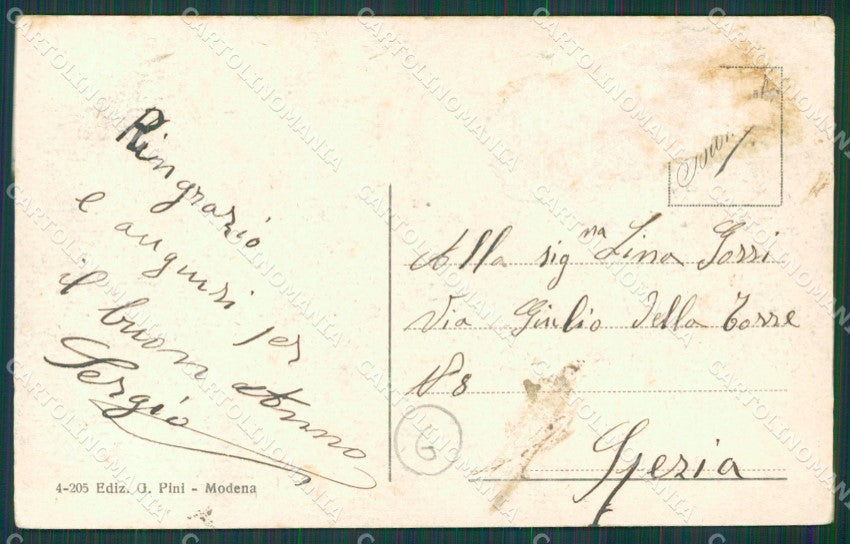 Ringrazio
e auguri per
il buon Anno
Sergio
4-205 Ediz. G. Pini - Modena
Alla sig.na Lina Gorri
Via Giulio della Torre
N 8
Spezia
6
CARTOLINOMANIA